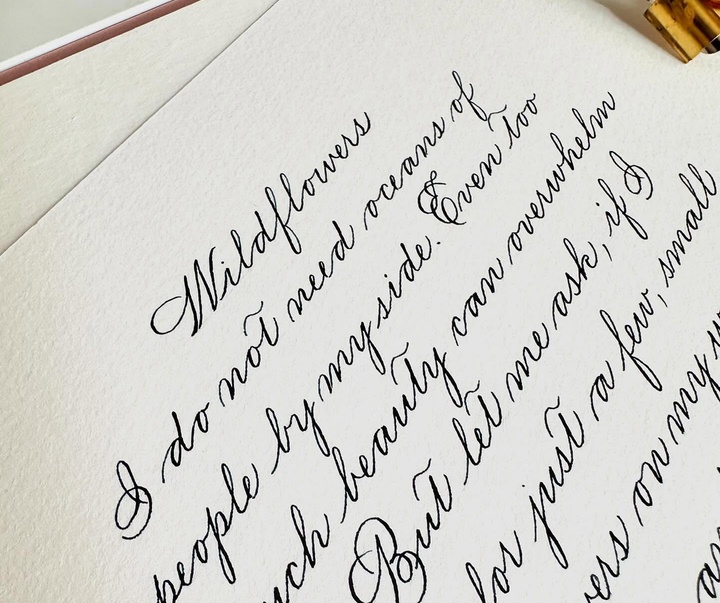 Wildflowers
I do not need oceans of
people by my side. Even too
much beauty can overwhelm
But let me ask, if I
for just a few, small
on my